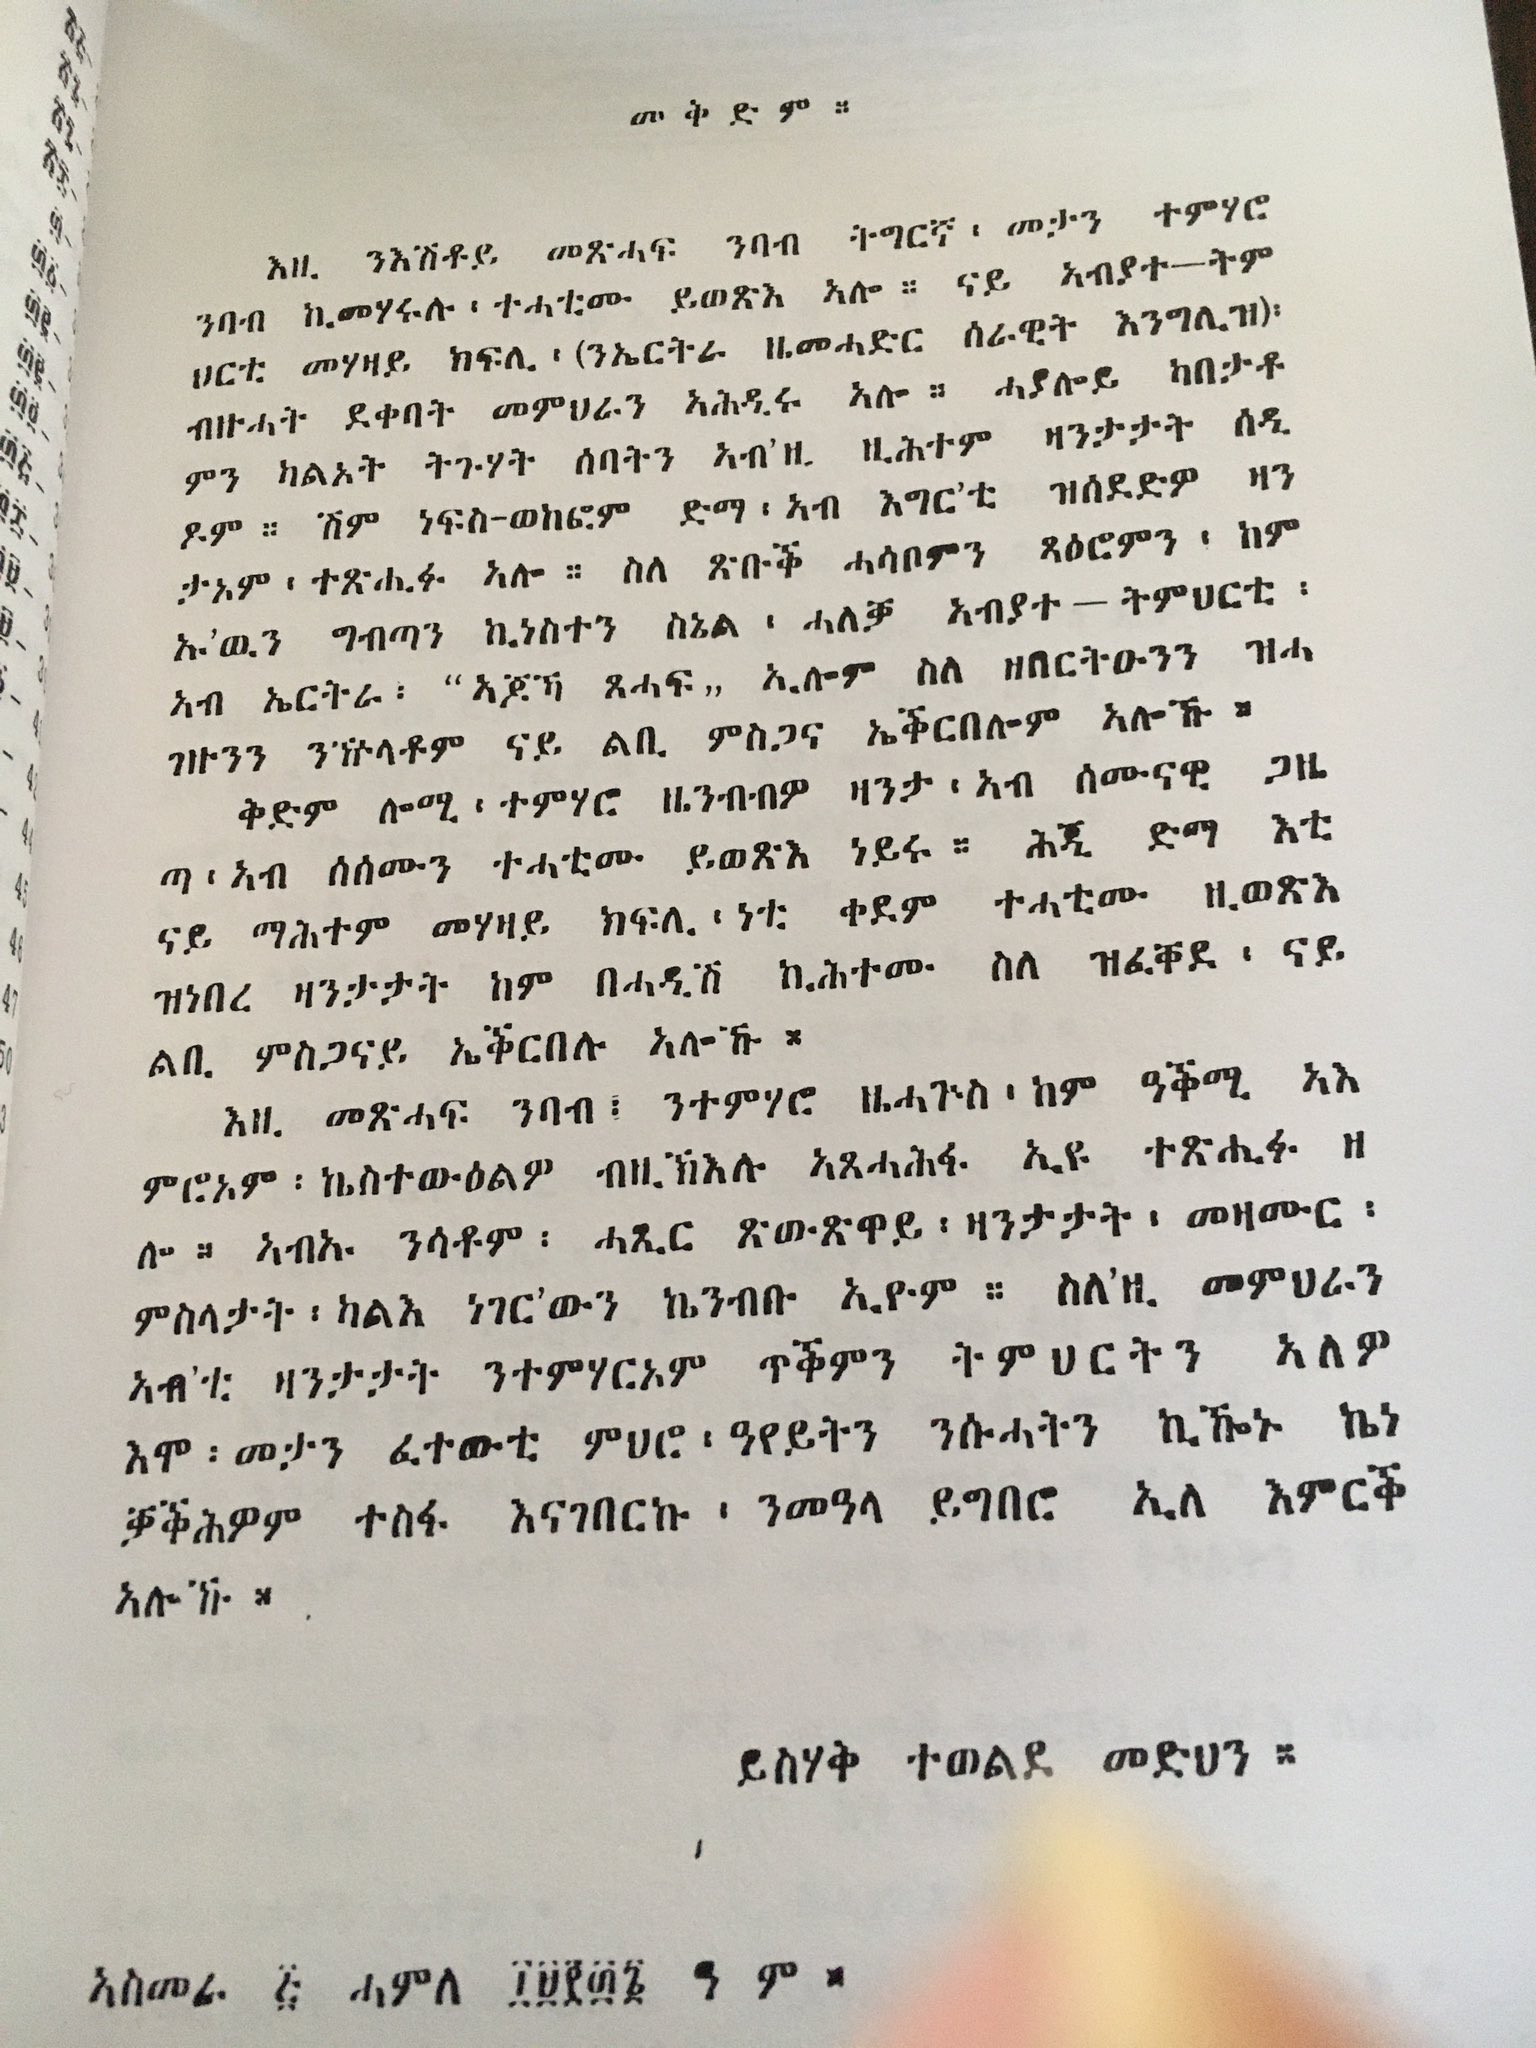 መ ቅ ድ ም ።
እዚ ንእሽቶይ መጽሓፍ ንባብ ትግርኛ ፡ መታን ተምሃሮ
ንባብ ኪመሃሩሉ ፡ ተሓቲሙ ይወጽእ ኣሎ ። ናይ ኣብያተ—ትም
ህርቲ መሃዛይ ክፍሊ ፡ (ንኤርትራ ዜመሓድር ሰራዊት እንግሊዝ)፡
ብዙሓት ደቀባት መምህራን ኣሕዲሩ ኣሎ ። ሓያሎይ ካበታቶ
ምን ካልኦት ትጉሃት ሰባትን ኣብ'ዚ ዚሕተም ዛንታታት ሰዲ
ዶም ። ሽም ነፍስ-ወከፎም ድማ ፡ ኣብ እግር'ቲ ዝሰደድዎ ዛን
ታኦም ፡ ተጽሒፉ ኣሎ ። ስለ ጽቡቕ ሓሳቦምን ጻዕሮምን ፡ ከም
ኡ'ዉን ግብጣን ኪነስተን ስኔል ፡ ሓለቓ ኣብያተ — ትምህርቲ ፡
ኣብ ኤርትራ ፡ “ኣጆኻ ጸሓፍ„ ኢሎም ስለ ዘበርትዑንን ዝሓ
ገዙንን ንዅላቶም ናይ ልቢ ምስጋና ኤቕርበሎም ኣሎኹ ።
ቅድም ሎሚ ፡ ተምሃሮ ዜንብብዎ ዛንታ ፡ ኣብ ሰሙናዊ ጋዜ
ጣ ፡ ኣብ ሰሰሙን ተሓቲሙ ይወጽእ ነይሩ ። ሕጂ ድማ እቲ
ናይ ማሕተም መሃዛይ ክፍሊ ፡ ነቲ ቀደም ተሓቲሙ ዚወጽእ
ዝነበረ ዛንታታት ከም በሓዲሽ ኪሕተሙ ስለ ዝፈቐደ ፡ ናይ
ልቢ ምስጋናይ ኤቕርበሉ ኣሎኹ ።
እዚ መጽሓፍ ንባብ ፤ ንተምሃሮ ዜሓጕስ ፡ ከም ዓቕሚ ኣእ
ምሮኦም ፡ ኬስተውዕልዎ ብዚኽእሉ ኣጸሓሕፋ ኢዩ ተጽሒፉ ዘ
ሎ ። ኣብኡ ንሳቶም ፡ ሓጺር ጽውጽዋይ ፡ ዛንታታት ፡ መዛሙር ፡
ምስላታት ፡ ካልእ ነገር'ውን ኬንብቡ ኢዮም ። ስለ'ዚ መምህራን
ኣብ'ቲ ዛንታታት ንተምሃርኦም ጥቕምን ትምህርትን ኣለዎ
እሞ ፡ መታን ፈተውቲ ምህሮ ፡ ዓየይትን ንሱሓትን ኪዀኑ ኬነ
ቓቕሕዎም ተስፋ እናገበርኩ ፡ ንመዓላ ይግበሮ ኢለ እምርቕ
ኣሎኹ ።
ይስሃቅ ተወልደ መድህን ።
ኣስመራ ፭ ሓምለ ፲፱፻፴፮ ዓ ም ።